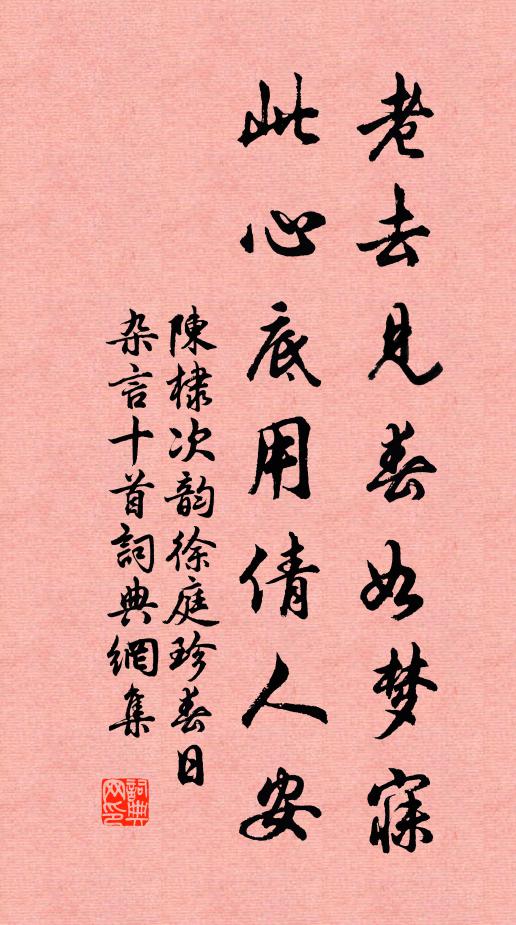 老去见春如梦寐
此心底用倩人安
陳棣次韵徐庭珍春日
杂言十首詞典網集
詞典网印